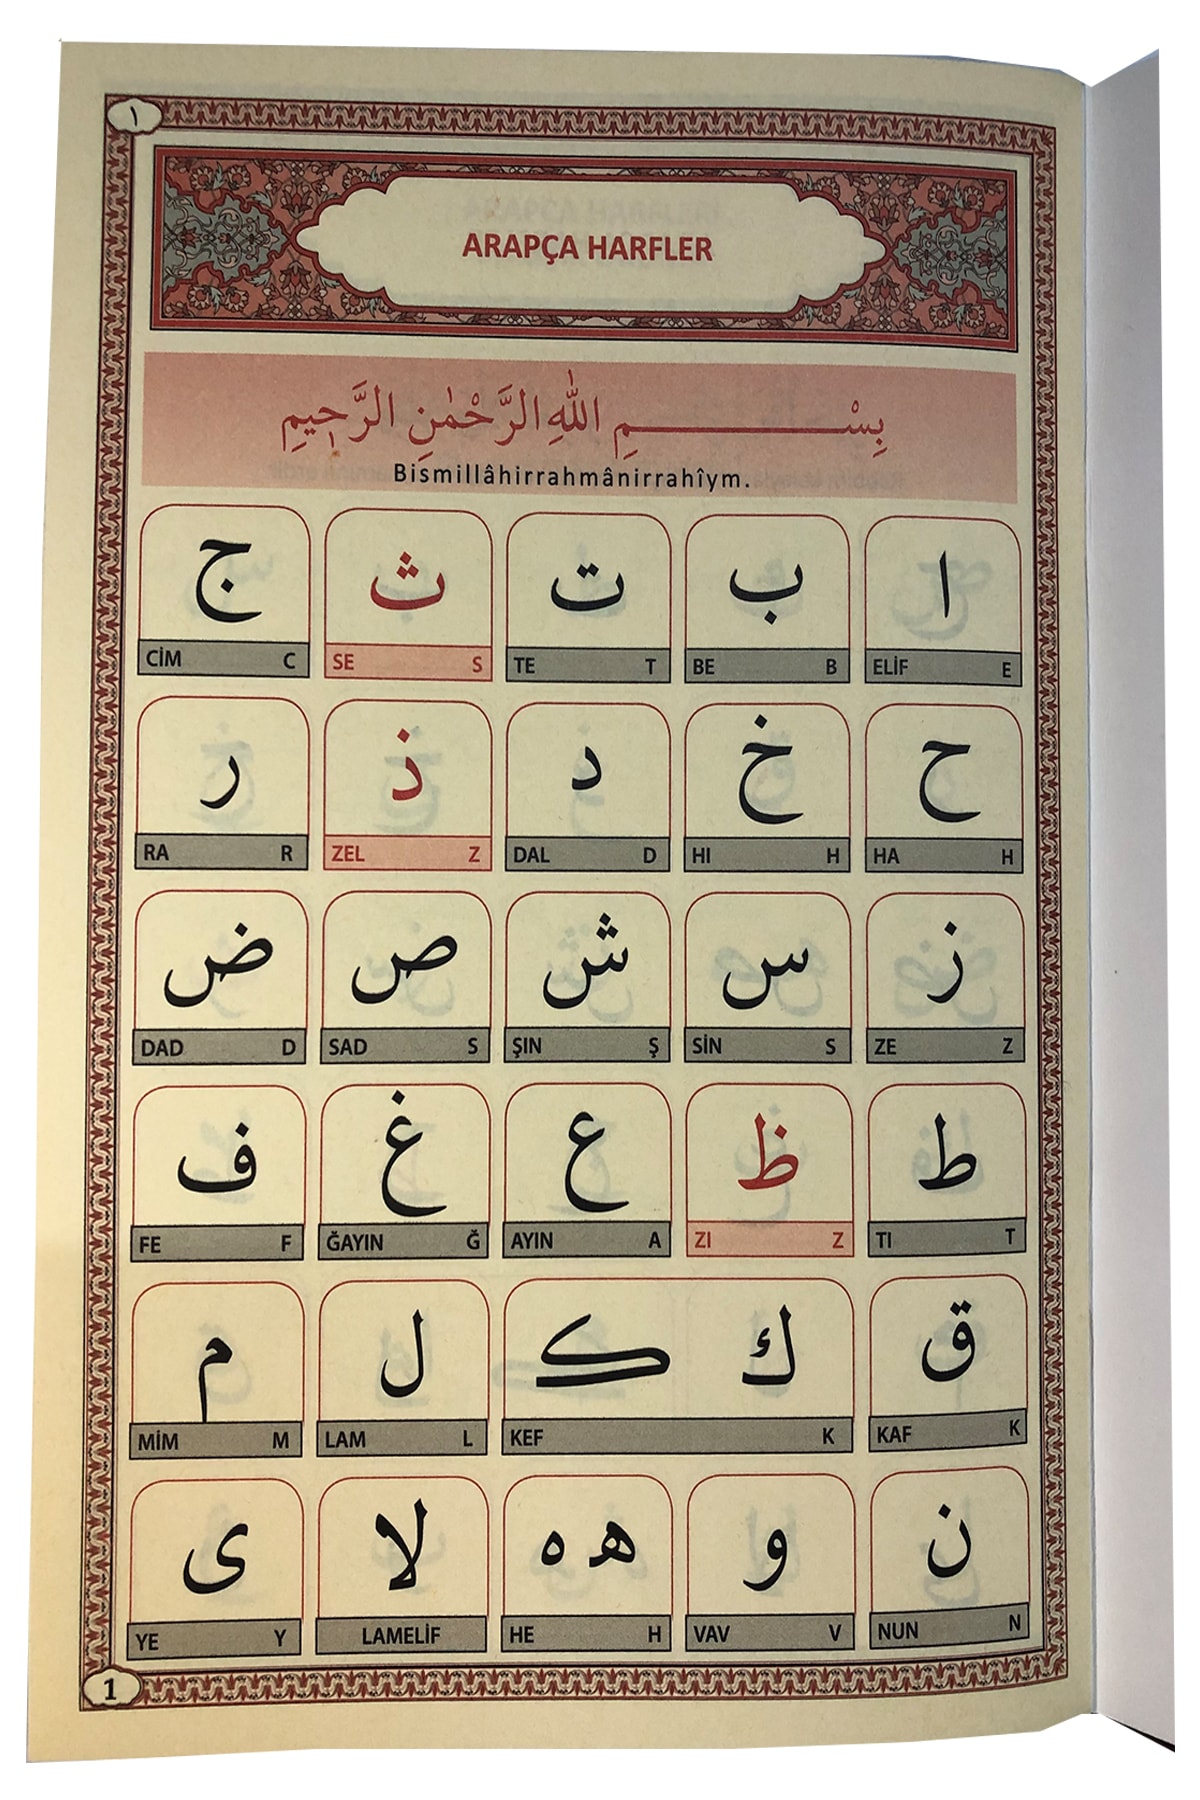 ١
ARAPÇA HARFLER
بِسْــــــــــمِ اللّٰهِ الرَّحْمٰنِ الرَّح۪يمِ
Bismillâhirrahmânirrahîym.
ا ب ت ث ج
ELİF E BE B TE T SE S CİM C
ح خ د ذ ر
HA H HI H DAL D ZEL Z RA R
ز س ش ص ض
ZE Z SİN S ŞIN Ş SAD S DAD D
ط ظ ع غ ف
TI T ZI Z AYIN A ĞAYIN Ğ FE F
ق ك ڪ ل م
KAF K KEF K LAM L MİM M
ن و ه ه لا ى
NUN N VAV V HE H LAMELİF YE Y
1